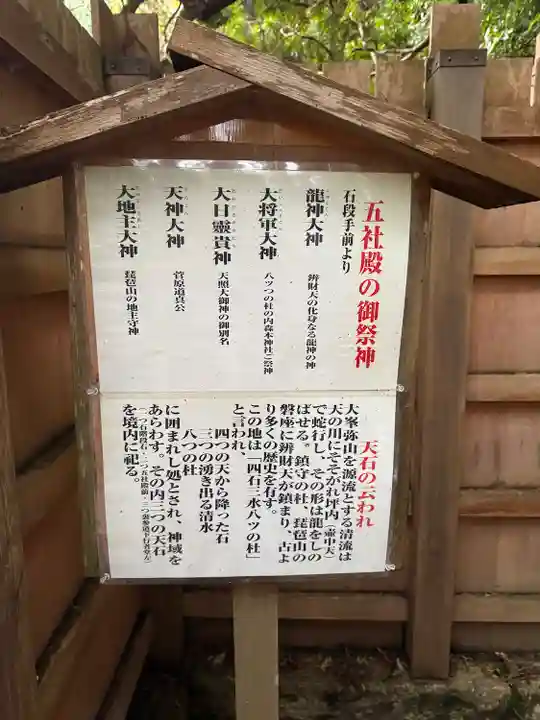 五社殿の御祭神
石段手前より
龍神大神
辨財天の化身なる龍神の神
大将軍大神
八ツつの杜の内森本神社ご祭神
大日靈貴神
天照大御神の御別名
天神大神
菅原道真公
大地主大神
琵琶山の地主守神
天石の云われ
大峯弥山を源流とする清流は
天の川にそそがれ坪内(壷中天)
で蛇行し、その形は龍をしの
ばせる。鎮守の杜、琵琶山の
磐座に辨財天が鎮まり、古よ
り多くの歴史を有す。
この地は「四石三水八ツの杜」
と言われ、
四つの天から降った石
三つの湧き出る清水
八つの杜
に囲まれし処とされ、神域を
あらわす。その内三つの天石
を境内に祀る。